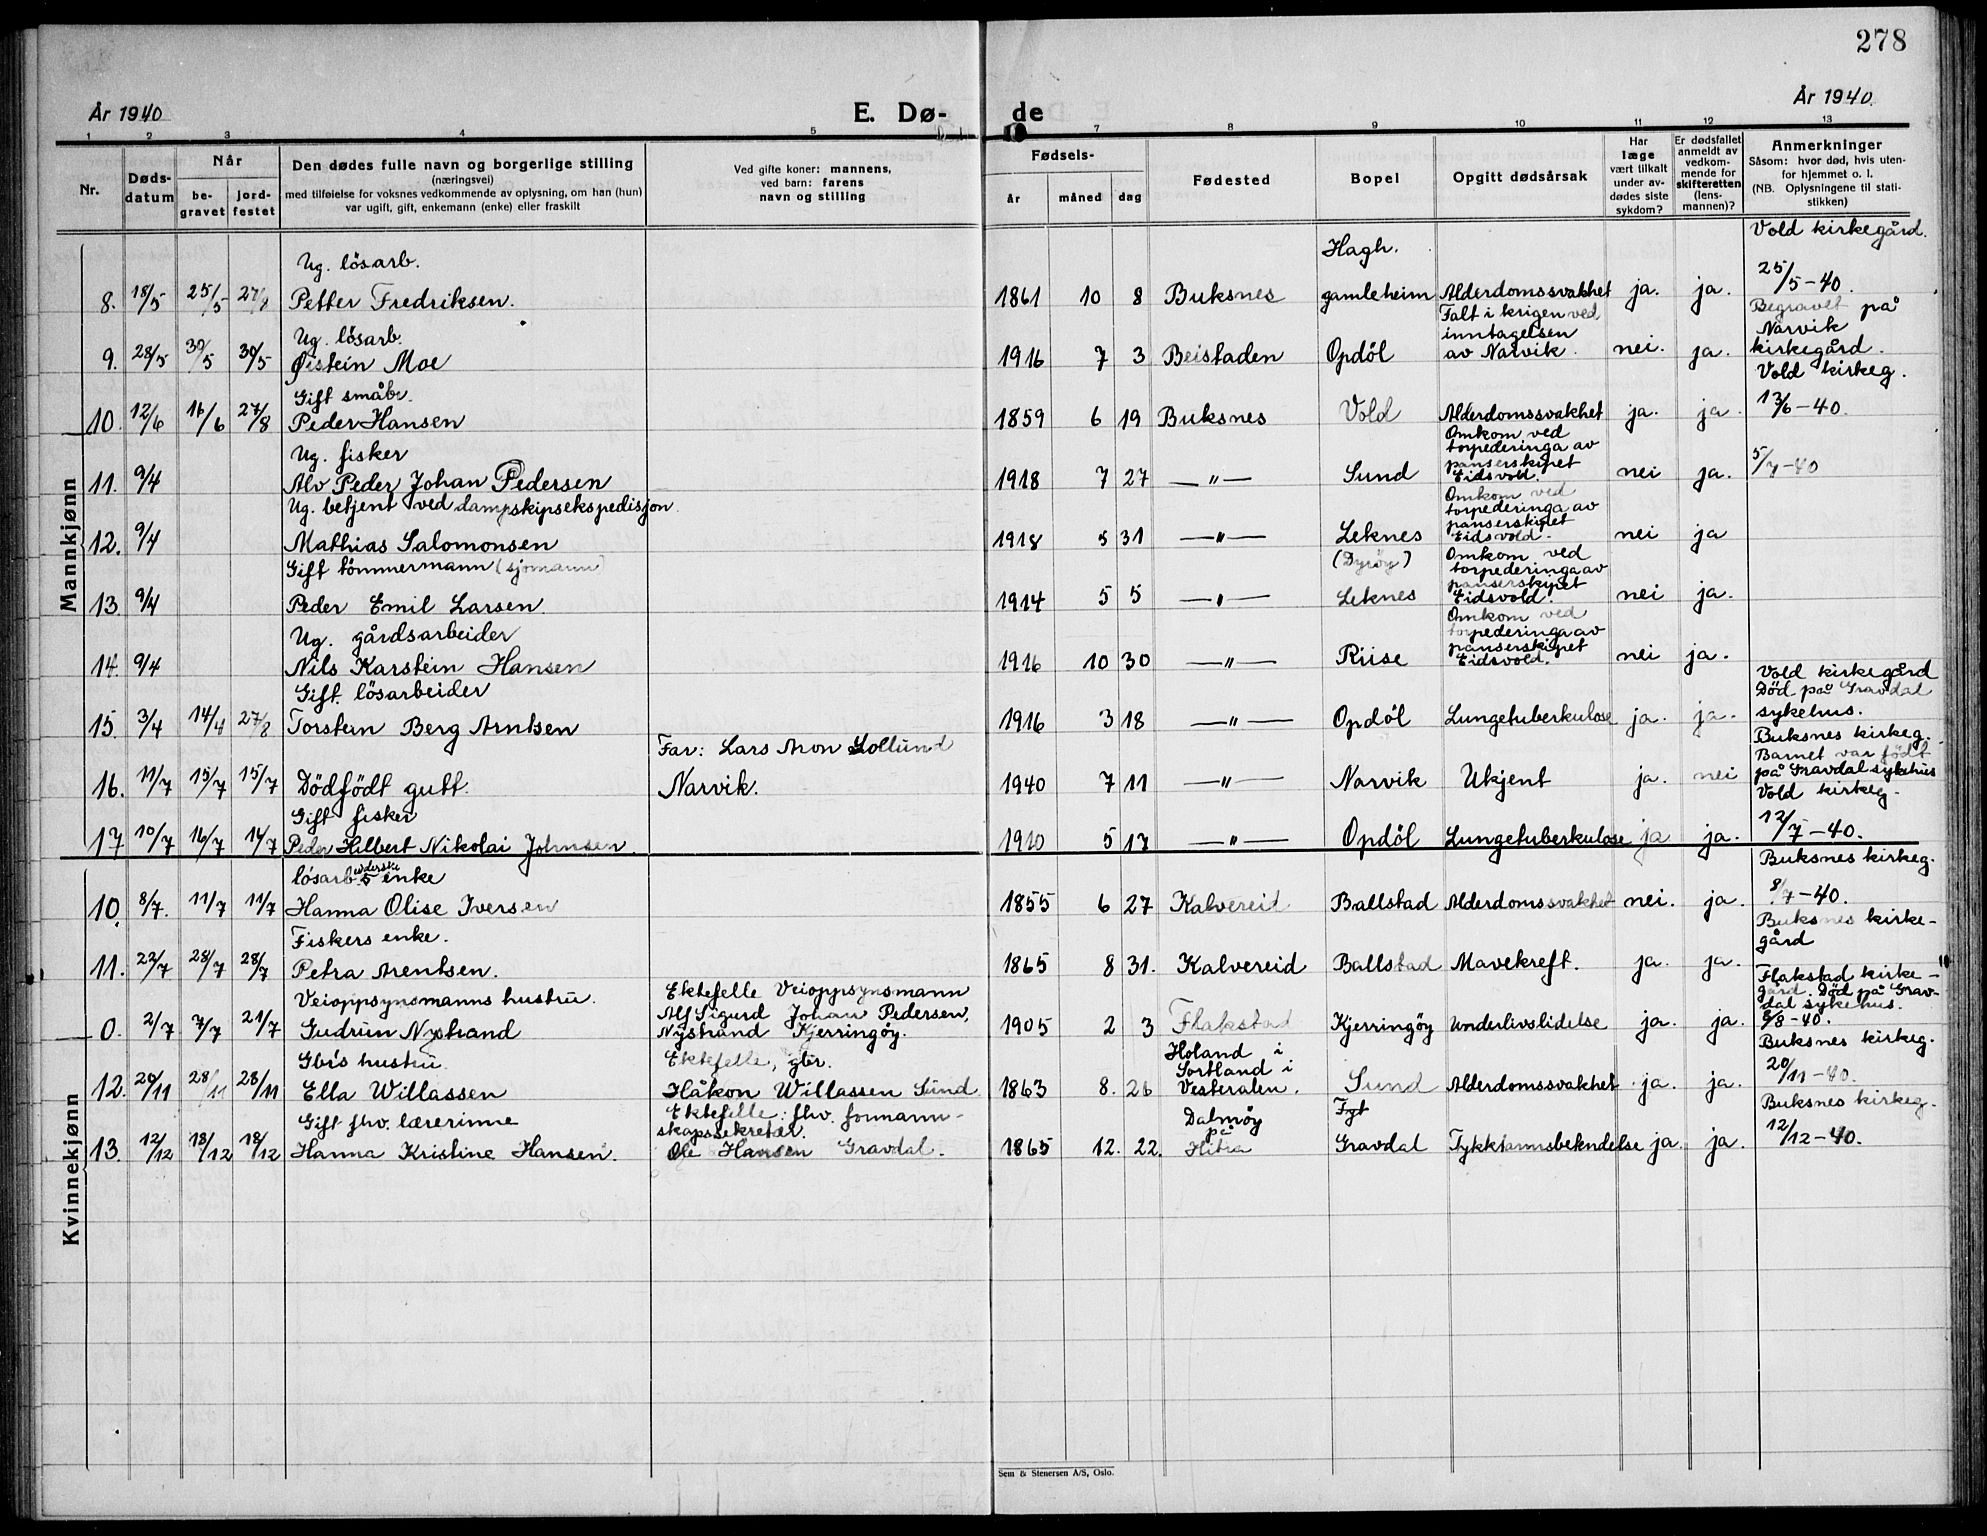 278
År 1940
E. Dø-
de
År 1940.
1 2 3 4 5 7 8 9 10 11 12 13
Nr.
Døds-
datum
Når
be-
gravet
jord-
festet
Den dødes fulle navn og borgerlige stilling
(næringsvei)
med tilføielse for voksnes vedkommende av oplysning, om han (hun)
var ugift, gift, enkemann (enke) eller fraskilt
Ved gifte koner: mannens,
ved barn: farens
navn og stilling
Fødsels-
år
måned
dag
Fødested
Bopel
Opgitt dødsårsak
Har
læge
vært tilkalt
under av-
dødes siste
sykdom?
Er dødsfallet
anmeldt av
vedkom-
mende for
skifteretten
(lens-
mannen)?
Anmerkninger
Såsom: hvor død, hvis uten-
for hjemmet o. l.
(NB. Oplysningene til stati-
stikken)
Mannkjønn
Ug. lösarb. Hagh. Vold kirkegård.
8. 18/5 25/5 27/8 Petter Fredriksen. 1861 10 8 Buksnes gamleheim Alderdomssvakhet ja. ja. 25/5-40.
Ug. lösarb. Falt i krigen ved Begravet på
inntagelsen Narvik
9. 28/5 30/5 30/5 Øistein Moe 1916 7 3 Beistaden Opdöl av Narvik. nei. ja. kirkegård.
Gift småbr. Vold kirkeg.
10. 12/6 16/6 27/8 Peder Hansen 1859 6 19 Buksnes Vold Alderdomssvakhet ja. ja. 13/6-40.
Ug. fisker Omkom ved
torpederinga av
panserskipet
11. 9/4 Alv Peder Johan Pedersen 1918 7 27 —"— Sund Eidsvold. nei ja. 5/7-40
Ug. betjent ved dampskipsekspedisjon. Omkom ved
torpederinga av
panserskipet
12. 9/4 Mathias Salomonsen 1918 5 31 —"— Leknes Eidsvold. nei ja
Gift tömmermann (sjömann) (Dyröy) Omkom ved
torpederinga av
panserskipet
13. 9/4 Peder Emil Larsen 1914 5 5 —"— Leknes Eidsvold. nei ja.
Ug. gårdsarbeider Omkom ved
torpederinga av
panserskipet
14. 9/4 Nils Karstein Hansen 1916 10 30 —"— Riise Eidsvold. nei ja.
Gift lösarbeider Vold kirkegård
Död på Gravdal
15. 3/4 14/4 27/8 Torstein Berg Arntsen 1916 3 18 —"— Opdöl Lungetuberkulose ja. ja. sykehus.
Far: Lars Aron Sollund Buksnes kirkeg.
Barnet var födt
16. 11/7 15/7 15/7 Dödfödt gutt. Narvik. 1940 7 11 —"— Narvik Ukjent ja. nei på Gravdal sykehus
Gift fisker Vold kirkeg.
17 10/7 16/7 14/7 Peder Hilbert Nikolai Johnsen. 1910 5 17 —"— Opdöl Lungetuberkulose ja ja. 12/7-40.
Kvinnekjønn
lösarb.s enke Buksnes kirkeg.
10. 8/7. 11/7 11/7 Hanna Olise Iversen 1855 6 27 Kalvereid Ballstad Alderdomssvakhet nei. ja. 8/7-40.
Fiskers enke. Buksnes kirke-
gård
11. 22/7 28/7 28/7 Petra Arentsen. 1865 8 31. Kalvereid Ballstad Mavekreft. ja. ja.
Veioppsynsmanns hustru. Ektefelle Veioppsynsmann Flakstad kirke-
Alf Sigurd Johan Pedersen, gård. Död på Grav-
dal sykehus.
0. 2/7 7/7 21/7 Gudrun Nystrand Nystrand Kjerringöy. 1905 2 3 Flakstad Kjerringöy Underlivslidelse ja. ja. 8/8-40.
Gbr's hustru Ektefelle, gbr. Holand i Buksnes kirkeg.
Sortland i
12. 20/11 28/11 28/11 Ella Willassen Håkon Willassen Sund. 1863 8. 26 Vesterålen. Sund Alderdomssvakhet ja. ja. 20/11-40.
Gift fhv. lærerinne Ektefelle: fhv. formann- Dalmöy Fgt Buksnes kirkeg.
skapssekretær. på
13. 12/12 18/12 18/12 Hanna Kristine Hansen. Ole Hansen Gravdal. 1865 12. 22. Hitra Gravdal Tykktarmsbetendelse ja. ja. 12/12-40.
Sem & Stenersen A/S, Oslo.